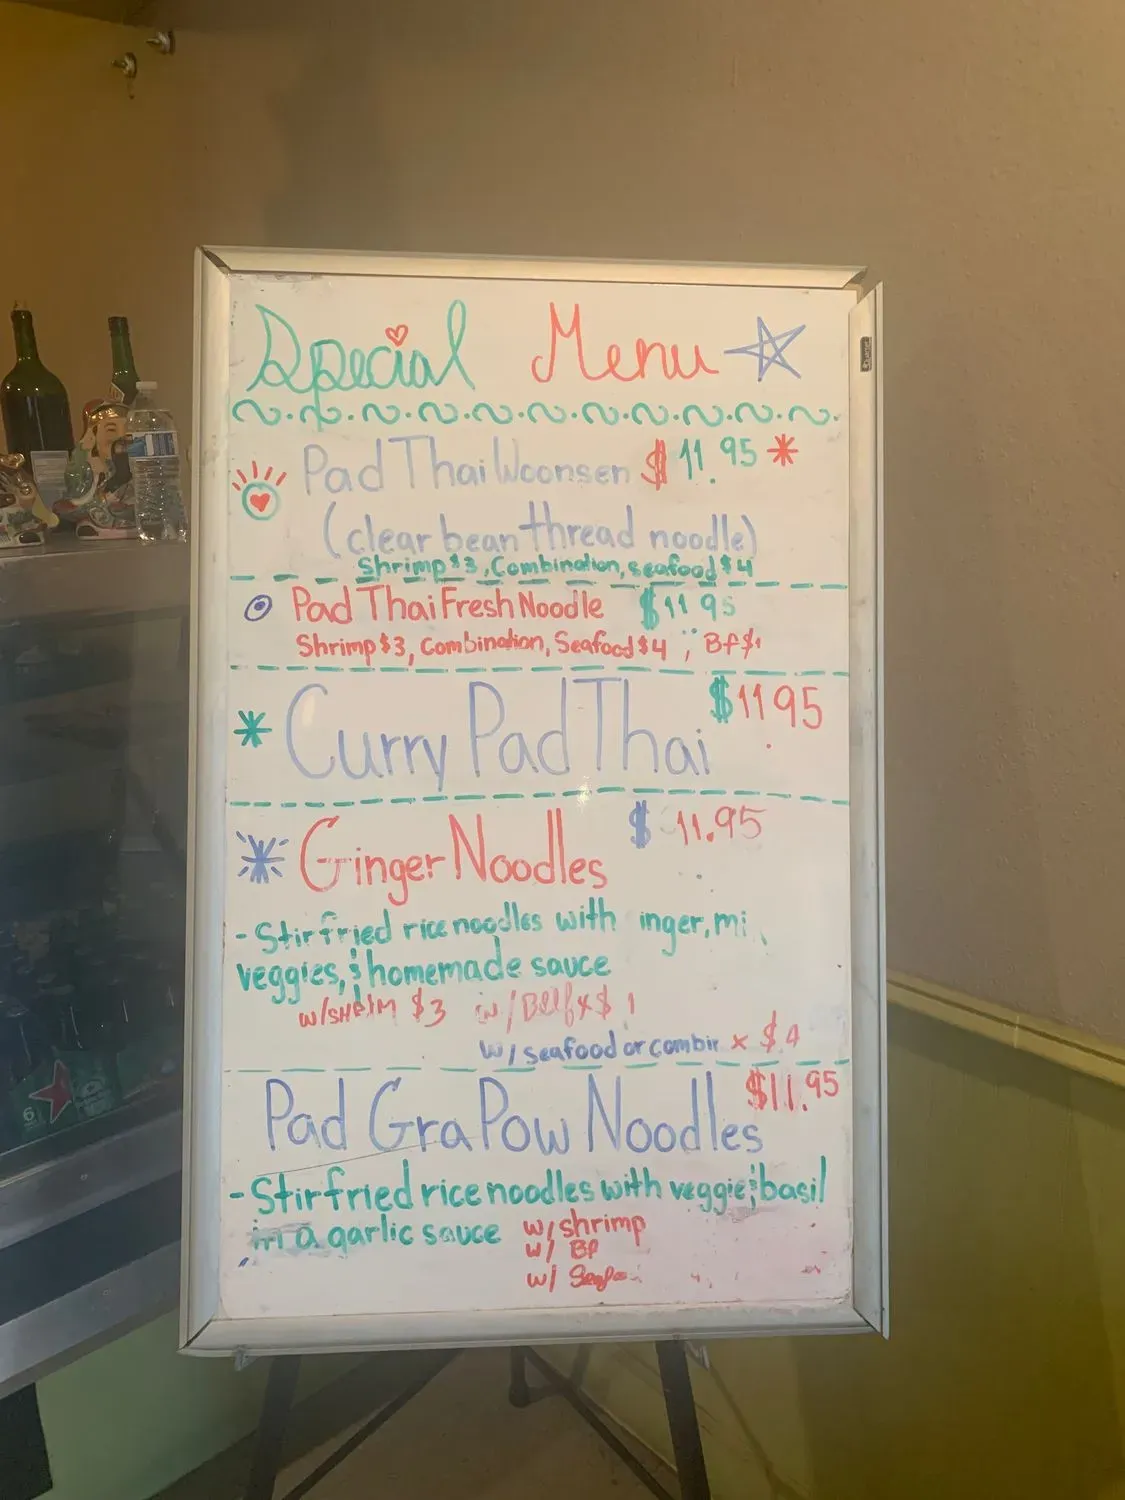 Special Menu
Pad Thai Woonsen $11.95*
(clear bean thread noodle)
Shrimp $3, Combination, seafood $4
Pad Thai Fresh Noodle $11 95
Shrimp $3, Combination, Seafood $4 ; Bf $1
* Curry Pad Thai $11.95
Ginger Noodles $ 11.95
- Stir fried rice noodles with inger, mi
veggies, & homemade sauce
w/ SHRIM $3 w/ Beef x $ 1
w/ seafood or combin x $4
Pad Gra Pow Noodles $11.95
- Stir fried rice noodles with veggie, & basil
in a garlic sauce w/ shrimp
w/ Bf
w/
6